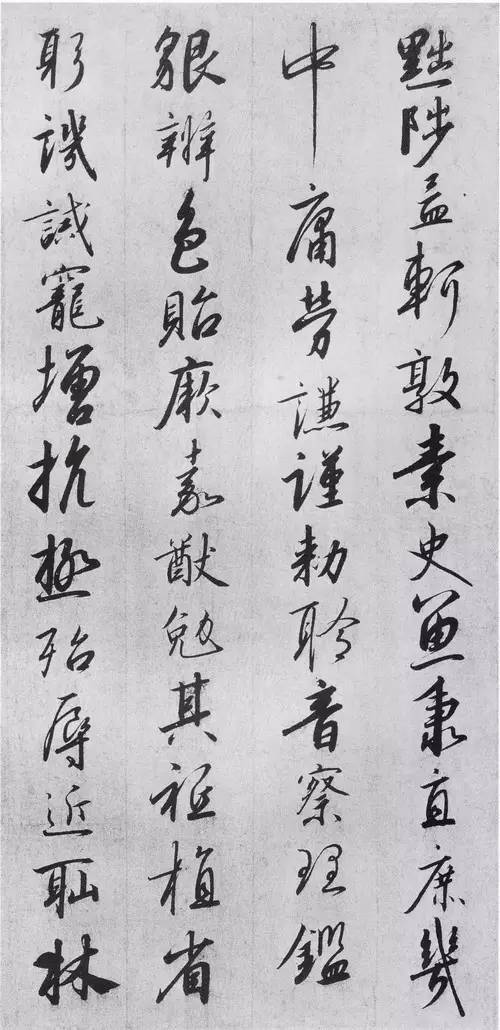 黜陟孟軻敦素史魚秉直庶幾
中庸勞謙謹勅聆音察理鑑
貌辨色貽厥嘉猷勉其祗植省
躬譏誡寵增抗極殆辱近恥林